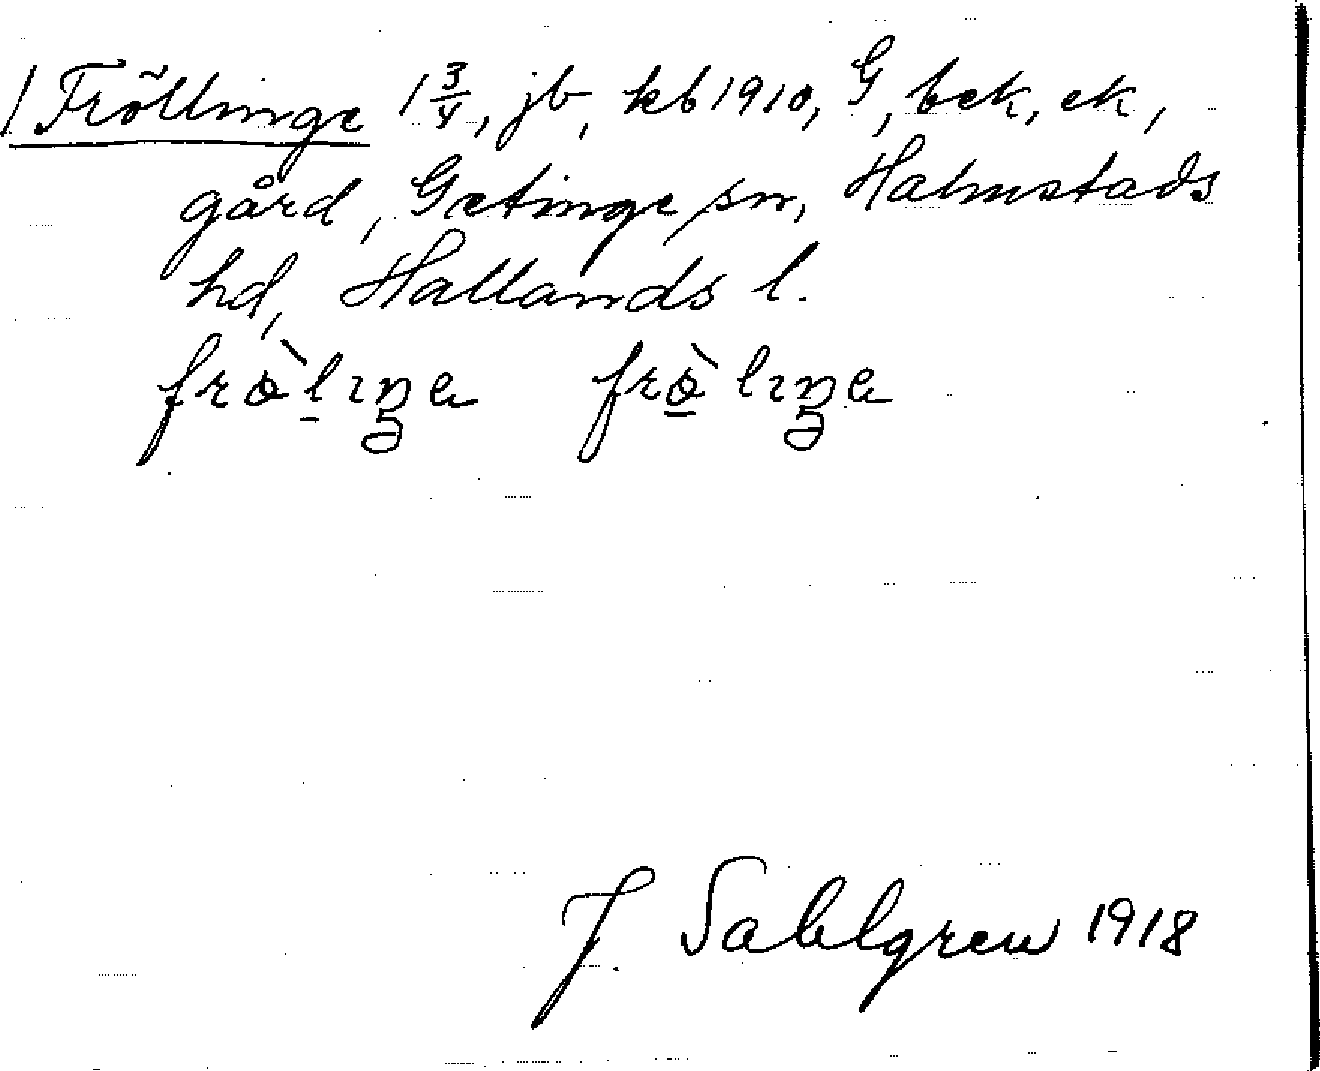 1 Fröllinge 1 3/4, jb, kb 1910, G, bek, ek,
gård, Getinge sn, Halmstads
hd, Hallands l.
frö̀lıŋa frö̀lıŋa
J. Sahlgren 1918